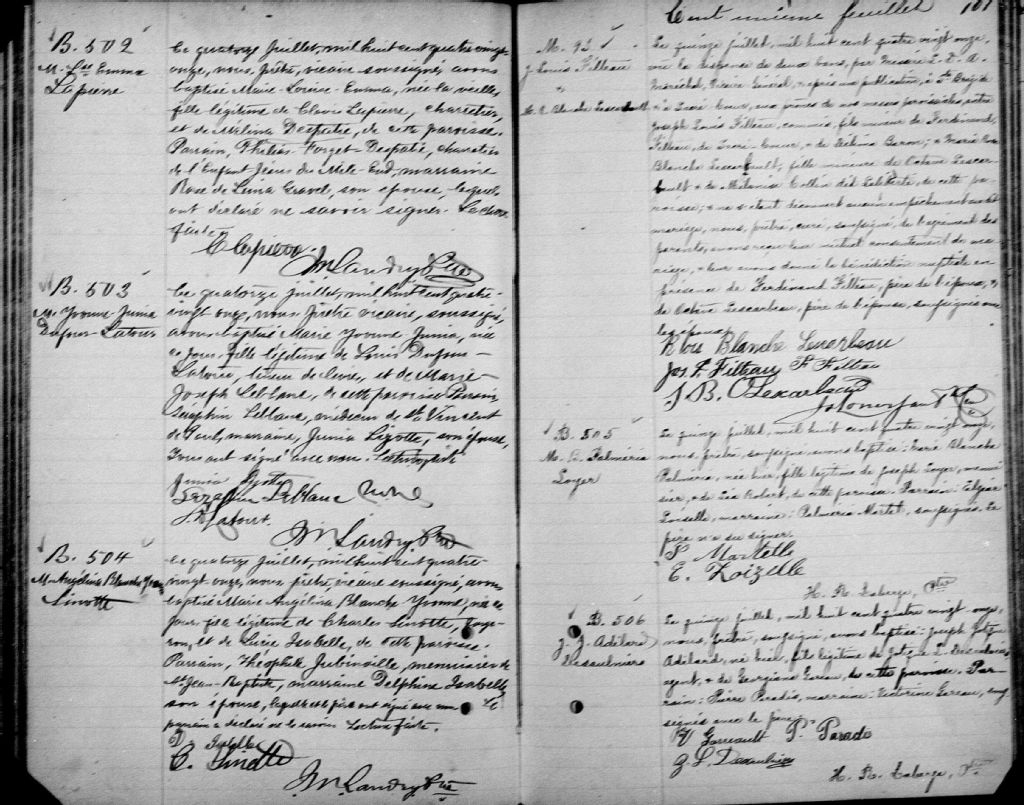 B. 502
M. Lse Emma
Lapierre
Le quatorze Juillet, mil huit cent quatre vingt
onze, nous, prêtre, vicaire soussigné, avons
baptisé Marie-Louise-Emma, née la veille,
fille légitime de Clovis Lapierre, charretier,
et de Mélina Despatie, de cette paroisse.
Parrain, Philias Forget-Despatie, charretier
de l'Enfant Jésus du Mile-End, marraine
Rose de Lima Gravel, son épouse, lesquels
ont déclaré ne savoir signer. Lecture
faite.
C Lapierre
J N Landry Ptre
B. 503
M. Yvonne Junia
Dufour-Latour
Le quatorze juillet, mil huit cent quatre-
vingt onze, nous, prêtre vicaire, soussigné,
avons baptisé Marie Yvonne, Junia, née
ce jour, fille légitime de Louis Dufour-
Latour, teneur de livres, et de Marie-
Joseph Leblanc, de cette paroisse. Parrain,
Séraphin Leblanc, médecin de St Vincent
de Paul, marraine, Junia Lizotte, son épouse,
Tous ont signé avec nous. Lecture faite
Junia Lizotte
Leblanc
Latour
J N Landry Ptre
B. 504
M. Angélina Blanche Yvonne
Sinotte
Le quatorze Juillet, mil huit cent quatre-
vingt onze, nous, prêtre, vicaire soussigné, avons
baptisé Marie Angélina, Blanche Yvonne, née ce
jour, fille légitime de Charles Sinotte,
et de Lucie Isabelle, de cette paroisse.
Parrain, Théophile Jubinville, menuisier de
St Jean-Baptiste, marraine Delphine Isabelle,
son épouse, laquelle et le père ont signé avec nous. Le
parrain a déclaré ne le savoir. Lecture faite.
D. Isabelle
C. Sinotte
J N Landry Ptre
Cent unième feuillet 101
M. 93
J. Louis Filteau
&
M. R. Blanche Lescarbeault
Le quinze juillet, mil huit cent quatre vingt onze,
vu la dispense de deux bans, par Messire L. D. A.
Maréchal, Vicaire Général, & après une publication, à Ste Brigide
& à Sacré Coeur, aux prônes de nos messes paroissiales, entre
Joseph Louis Filteau, commis, fils mineur de Ferdinand
Filteau, du Sacré-Coeur, & de Delima Baron; & Marie Rose
Blanche Lescarbeault, fille mineure de Octave Lescar-
beault & de Philomise Collin dit Laliberté, de cette pa-
roisse; & ne s'étant découvert aucun empêchement au dit
mariage, nous, prêtre, curé, soussigné, de l'agrément des
parents, avons reçu leur mutuel consentement de ma-
riage, & leur avons donné la bénédiction nuptiale en
présence de Ferdinand Filteau, père de l'époux, &
de Octave Lescarbeau, père de l'épouse, soussignés avec
les époux
Rose Blanche Lescarbeau
Jos L. Filteau F Filteau
J B. O Lescarbeau
B. 505
M. B. Palméria
Loyer
Le quinze juillet, mil huit cent quatre vingt onze,
nous, prêtre, soussigné, avons baptisé: Marie Blanche
Palméria, née hier, fille légitime de Joseph Loyer, menui-
sier, & de Léa Robert, de cette paroisse. Parrain:
Loiselle, marraine: Palméria Martel, soussignés. Le
père n'a su signer.
P. Martelle
E. Loizelle
H. R. Laberge, Ptre
B. 506
J. J. Adélard
Desaulniers
Le quinze juillet, mil huit cent quatre vingt onze,
nous, prêtre, soussigné, avons baptisé: Joseph
Adélard, né hier, fils légitime de L. Desaulniers,
agent, & de Georgiana Gareau, de cette paroisse. Par-
rain: Pierre Paradis, marraine: Victorine Gareau, sous-
signés avec le père.
V Garneault P. Parado
G. L. Desaulniers
H. R. Laberge, Ptre